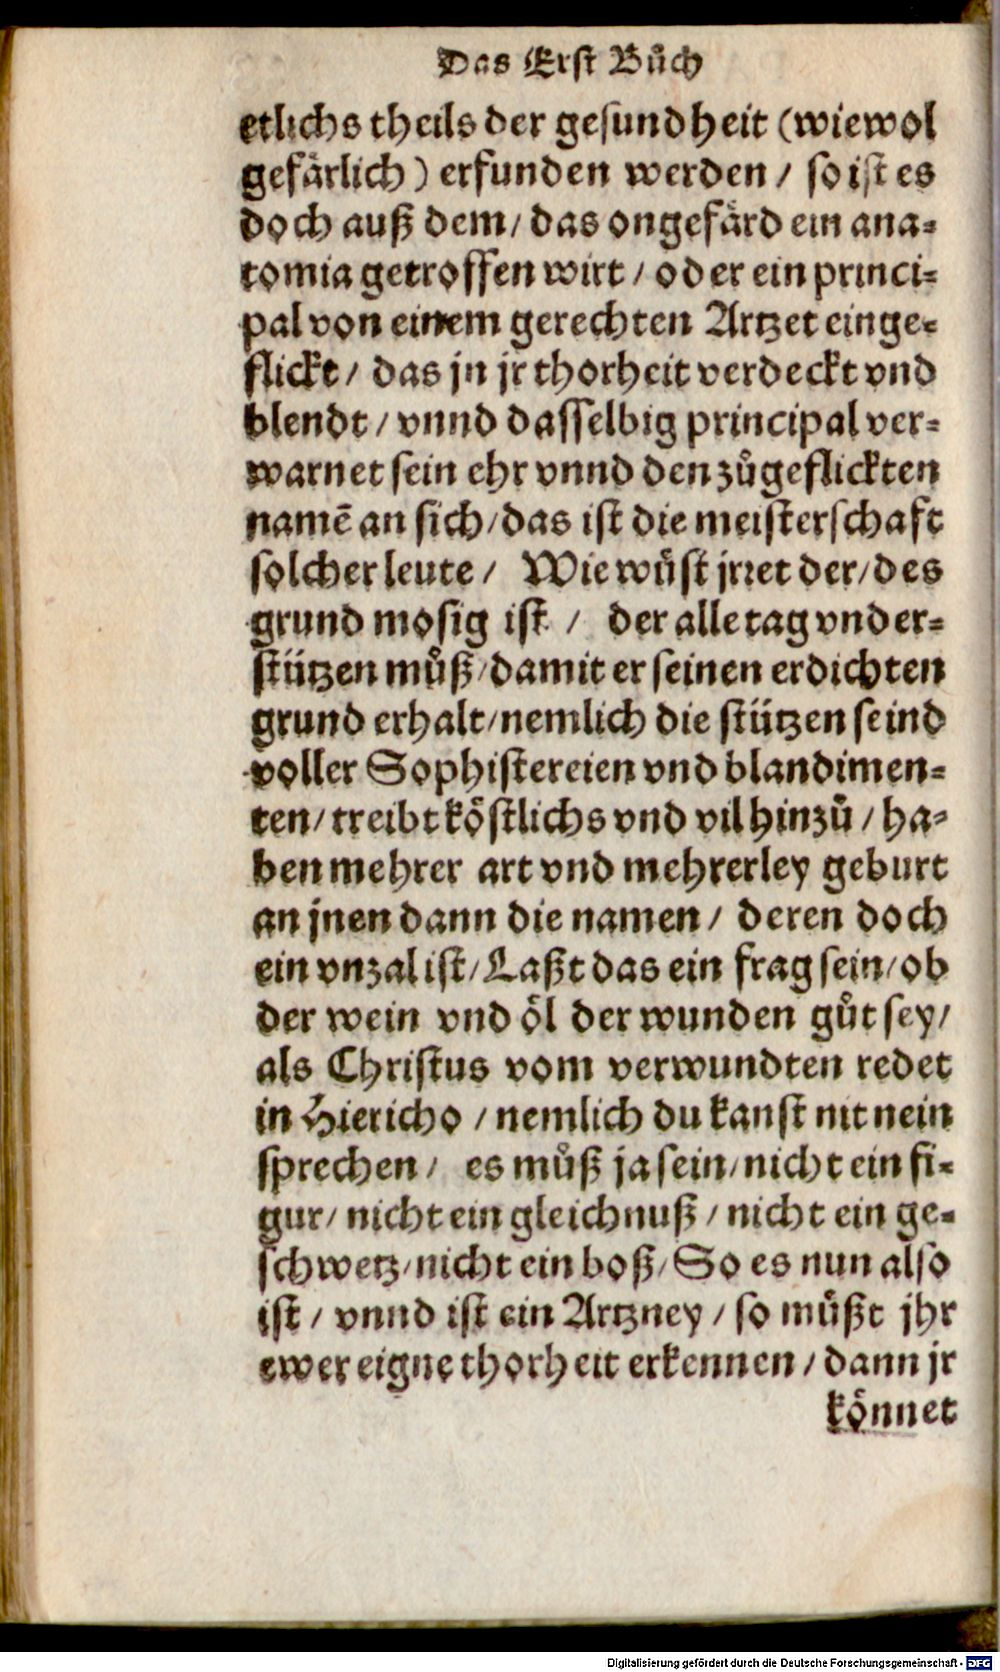 Das Erst Bůch
etlichs theils der gesundheit (wiewol
gefärlich) erfunden werden / so ist es
doch auß dem / das ongefärd ein ana-
tomia getroffen wirt / oder ein princi-
pal von einem gerechten Artzet einge-
flickt / das jn jr thorheit verdeckt vnd
blendt / vnnd dasselbig principal ver-
warnet sein ehr vnnd den zůgeflickten
namē an sich / das ist die meisterschaft
solcher leute / Wie wůst jrret der / des
grund mosig ist / der alle tag vnder-
stützen můß / damit er seinen erdichten
grund erhalt / nemlich die stützen seind
voller Sophistereien vnd blandimen-
ten / treibt köstlichs vnd vil hinzů / ha-
ben mehrer art vnd mehrerley geburt
an jnen dann die namen / deren doch
ein vnzal ist / Laßt das ein frag sein / ob
der wein vnd öl der wunden gůt sey /
als Christus vom verwundten redet
in Hiericho / nemlich du kanst nit nein
sprechen / es můß ja sein / nicht ein fi-
gur / nicht ein gleichnuß / nicht ein ge-
schwetz / nicht ein boß / So es nun also
ist / vnnd ist ein Artzney / so můßt jhr
ewer eigne thorheit erkennen / dann jr
könnet
Digitalisierung gefördert durch die Deutsche Forschungsgemeinschaft - DFG